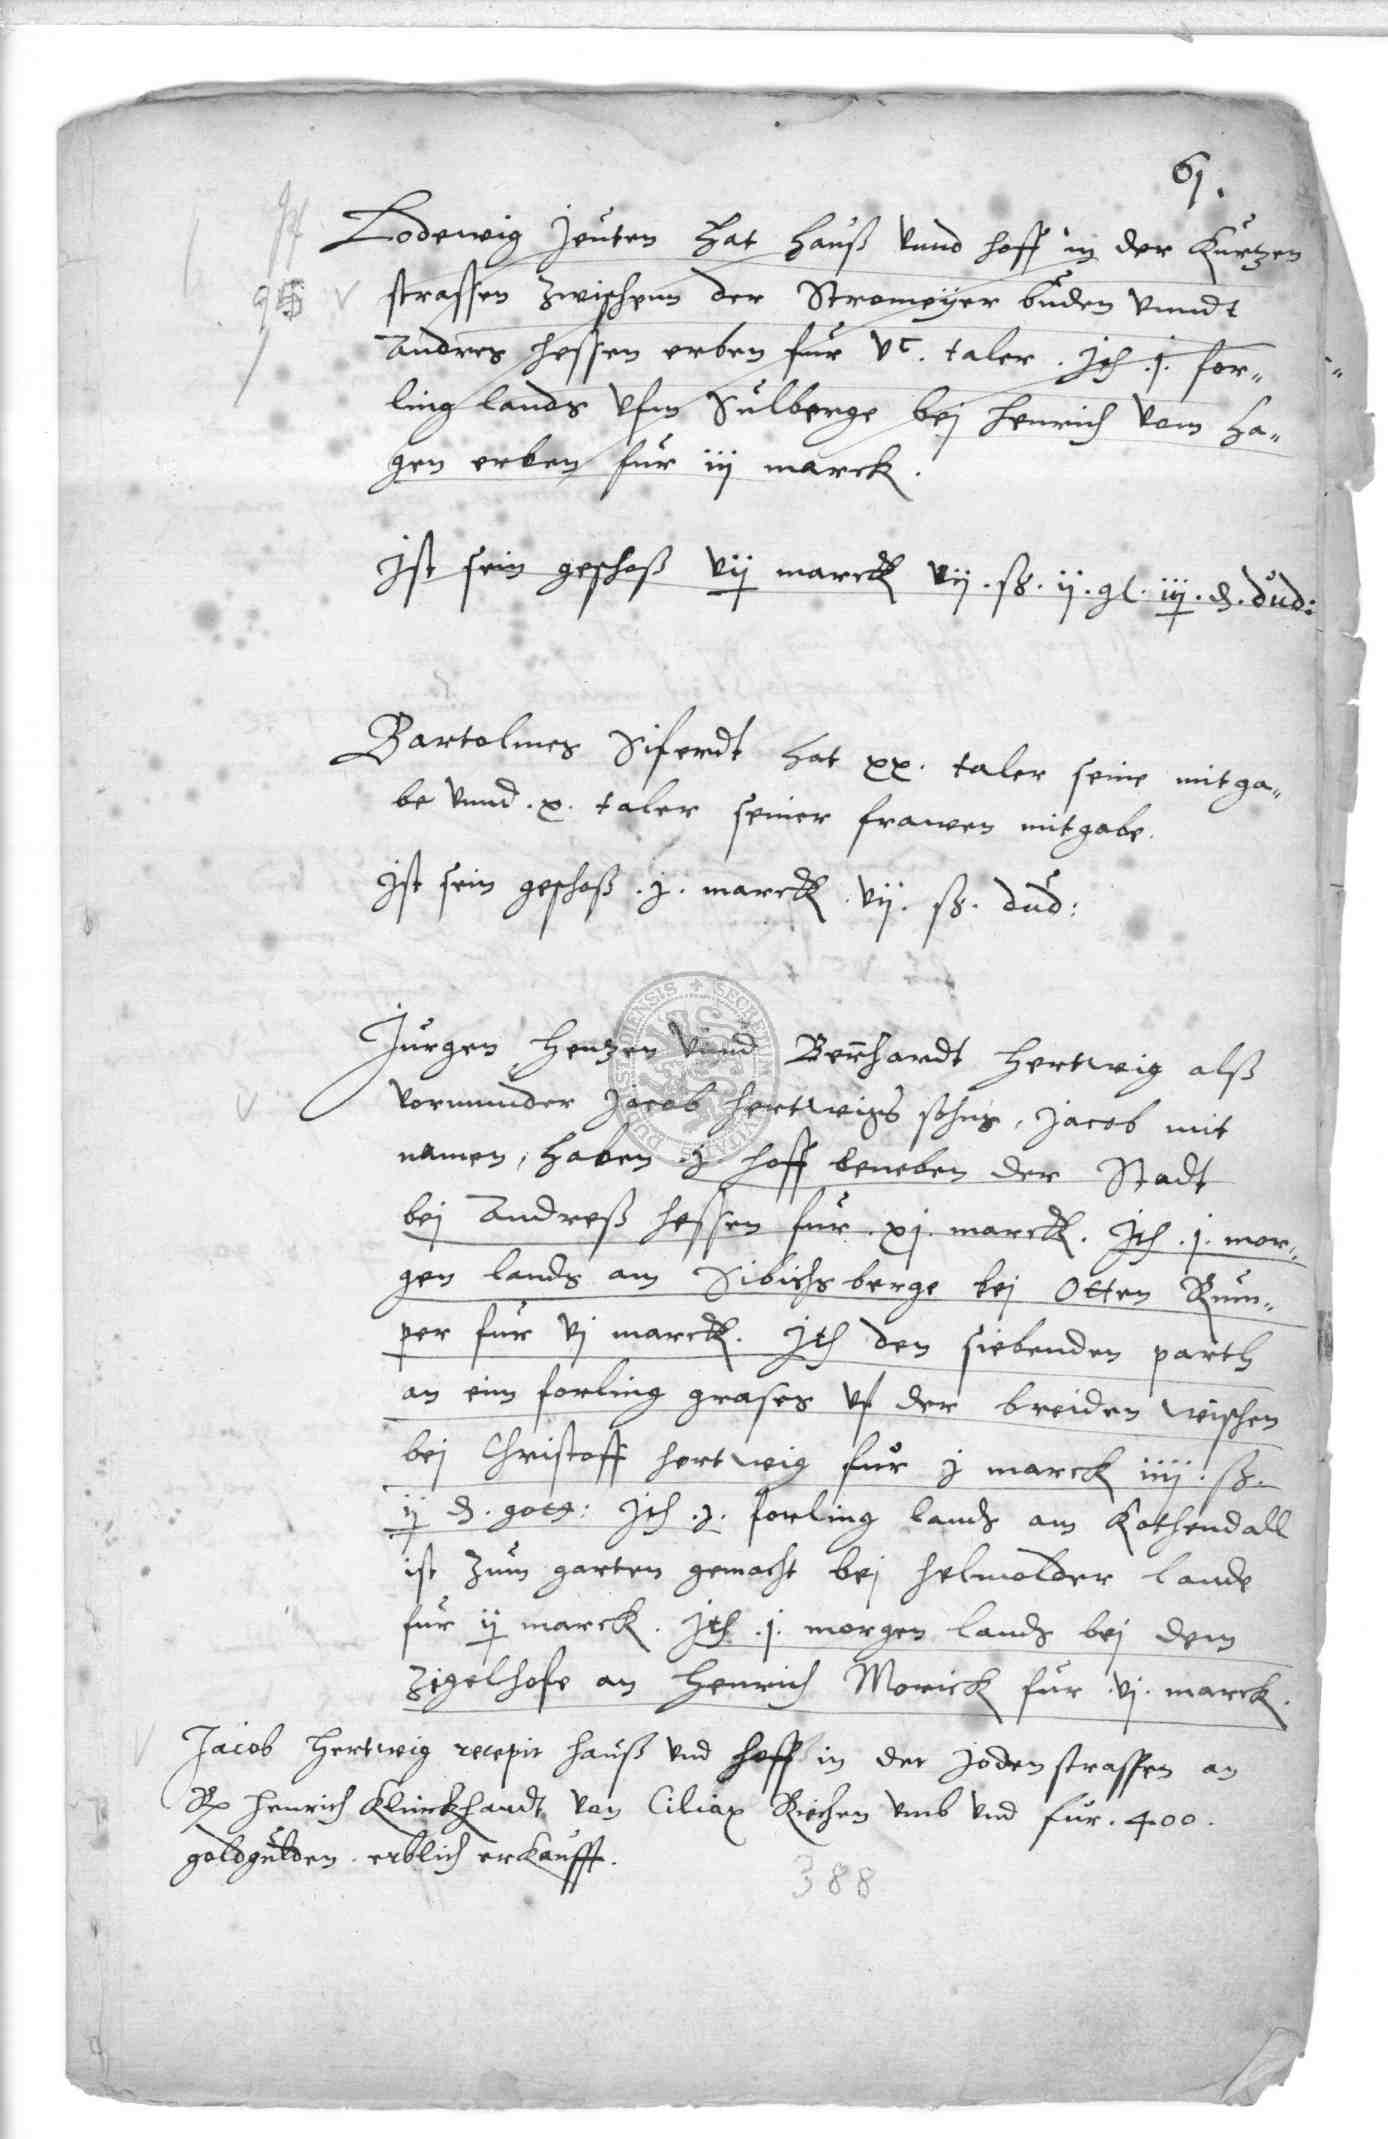 61.
Lodewig Jeuten hat hauß vnnd hoff in der Kurtzen
strassen zwischenn der Stromeyer buden vnndt
Andres hessen erben fur vc. taler. Jth .j. for„
ling lands vfm Sulberge bej henrich vom Ha„
gen erben fur iij marck.
Jst sein geschoß vij marck vij. ß. ij. gl. iij. d. dud:
Bartolmes Siferdt hat xx. taler seine mitga„
be vnnd .x. taler seiner frawen mitgabe.
Jst sein geschoß .j. marck .vij. ß. dud:
Jurgen Hentzen vnnd Bernhardt Hertwig alß
vormunder Jacob hertwigs sohns, Jacob mit
namen, haben .j. hoff beneben der Stadt
bej Andreß hessen fur .xj. marck. Jth .j. mor„
gen lands am Sibichsberge bej Otten Rum„
per fur vj marck. Jth den siebenden parth
an eim forling grases vf der breiden wischen
bej Christoff hertwig fur j marck iiij. ß.
ij d. gott: Jth .j. forling lands am Rothendall
ist zum garten gemacht bej helmolder lande
fur ij marck. Jth .j. morgen lands bej dem
Zigelhofe an Henrich Morick fur .vj. marck.
Jacob Hertwig recepit hauß vnd hoff in der Joden strassen an
henrich Klinckhardt von Ciliax Riechen vmb vnd fur .400.
goldgulden erblich erkaufft.
388